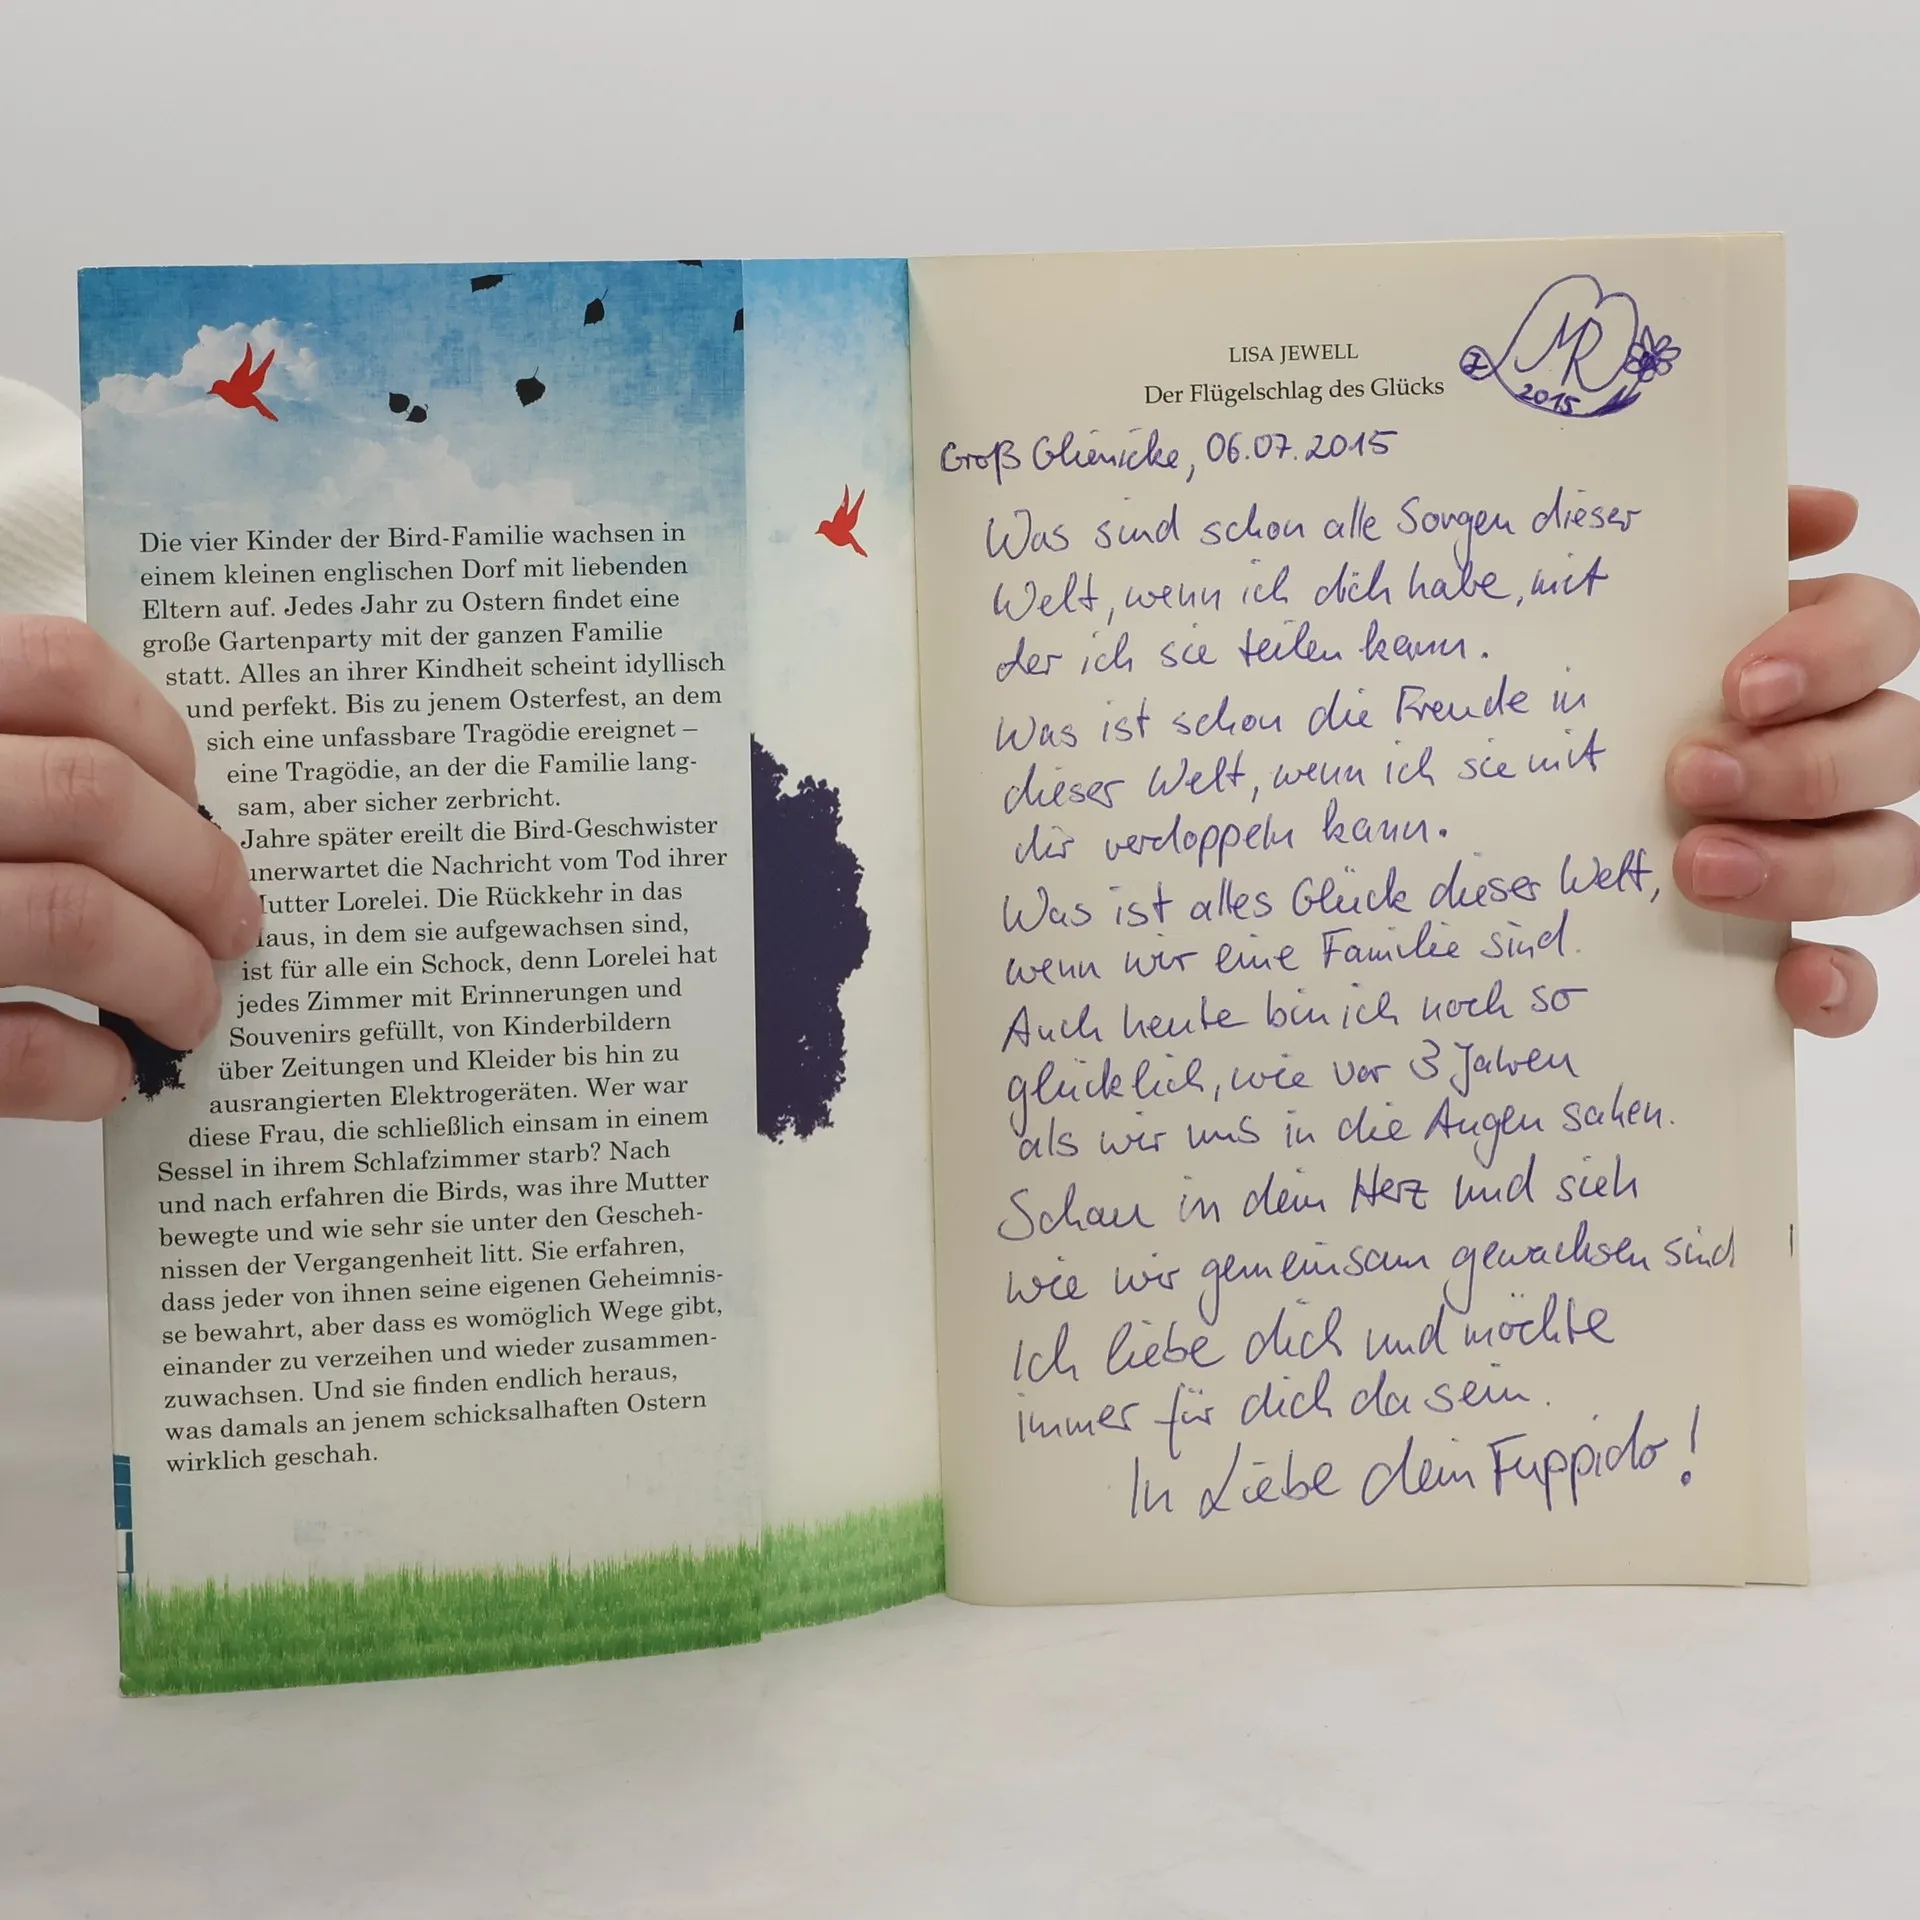 Die vier Kinder der Bird-Familie wachsen in
einem kleinen englischen Dorf mit liebenden
Eltern auf. Jedes Jahr zu Ostern findet eine
große Gartenparty mit der ganzen Familie
statt. Alles an ihrer Kindheit scheint idyllisch
und perfekt. Bis zu jenem Osterfest, an dem
sich eine unfassbare Tragödie ereignet –
eine Tragödie, an der die Familie lang-
sam, aber sicher zerbricht.
Jahre später ereilt die Bird-Geschwister
unerwartet die Nachricht vom Tod ihrer
Mutter Lorelei. Die Rückkehr in das
Haus, in dem sie aufgewachsen sind,
ist für alle ein Schock, denn Lorelei hat
jedes Zimmer mit Erinnerungen und
Souvenirs gefüllt, von Kinderbildern
über Zeitungen und Kleider bis hin zu
ausrangierten Elektrogeräten. Wer war
diese Frau, die schließlich einsam in einem
Sessel in ihrem Schlafzimmer starb? Nach
und nach erfahren die Birds, was ihre Mutter
bewegte und wie sehr sie unter den Gescheh-
nissen der Vergangenheit litt. Sie erfahren,
dass jeder von ihnen seine eigenen Geheimnis-
se bewahrt, aber dass es womöglich Wege gibt,
einander zu verzeihen und wieder zusammen-
zuwachsen. Und sie finden endlich heraus,
was damals an jenem schicksalhaften Ostern
wirklich geschah.
LISA JEWELL
Der Flügelschlag des Glücks
MR
2015
Groß Glienicke, 06.07.2015
Was sind schon alle Sorgen dieser
Welt, wenn ich dich habe, mit
der ich sie teilen kann.
Was ist schon die Freude in
dieser Welt, wenn ich sie mit
dir verdoppeln kann.
Was ist alles Glück dieser Welt,
wenn wir eine Familie sind.
Auch heute bin ich noch so
glücklich, wie vor 3 Jahren
als wir uns in die Augen sahen.
Schau in dein Herz und sieh
wie wir gemeinsam gewachsen sind
Ich liebe dich und möchte
immer für dich da sein.
In Liebe dein Fuppido!